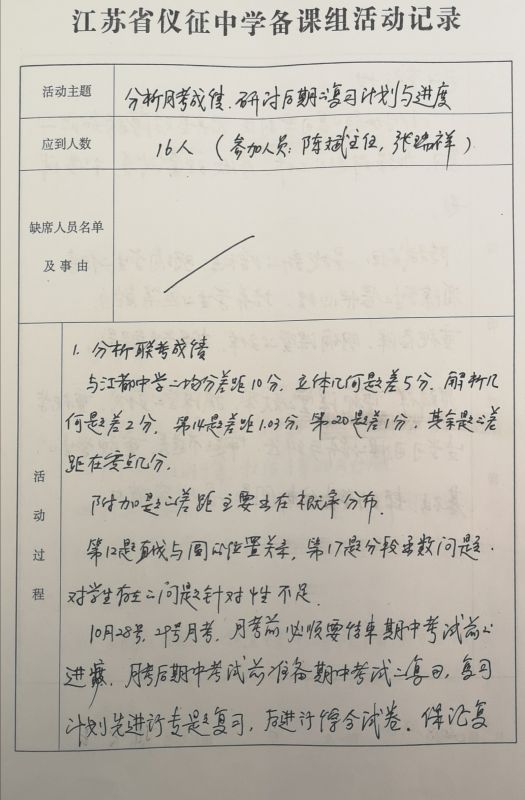 江苏省仪征中学备课组活动记录
活动主题
分析月考成绩.研讨后期之复习计划与进度
应到人数
16人（参加人员:陈斌主任,张瑞祥）
缺席人员名单
及事由
活动过程
1.分析联考成绩
与江都中学之均分差距10分.立体几何题差5分.解析几
何题差2分.第14题差距1.03分,第20题差1分,其余题之差
距在零点几分.
附加题之差距主要出在概率分布.
第12题直线与圆的位置关系,第17题分段函数问题.
对学生存在之问题针对性不足.
10月28号,29号月考.月考前必须要结束期中考试前之
进度.月考后期中考试前准备期中考试之复习,复习
计划先进行专题复习,后进行综合试卷.保证复